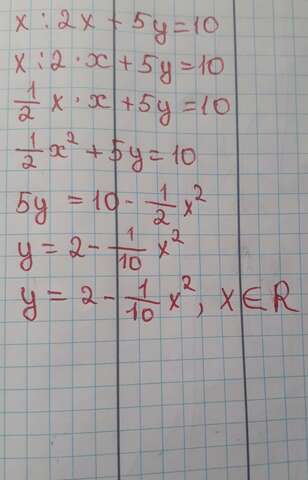 x : 2x + 5y = 10
x : 2 · x + 5y = 10
1/2 x · x + 5y = 10
1/2 x² + 5y = 10
5y = 10 - 1/2 x²
y = 2 - 1/10 x²
y = 2 - 1/10 x², x ∈ R